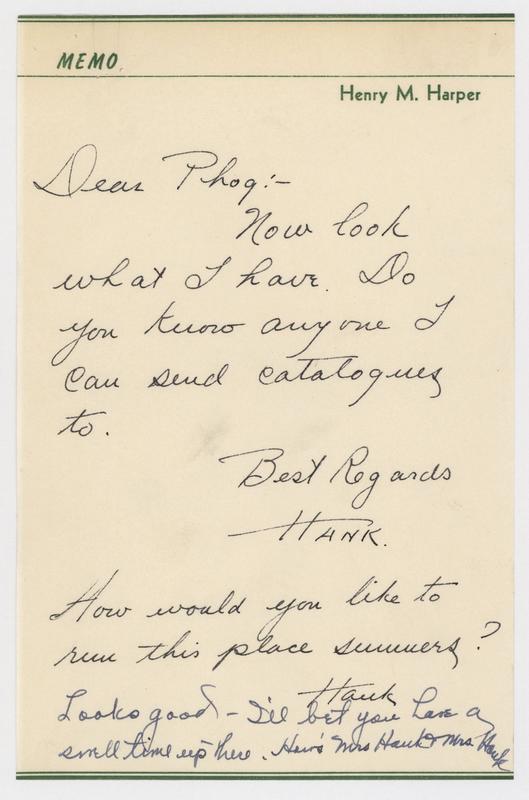 MEMO
Henry M. Harper
Dear Phog:-
Now look
what I have. Do
you know anyone I
can send catalogues
to.
Best Regards
HANK.
How would you like to
run this place summers?
Hank
Looks good - I'll bet you have a
swell time up there. How's Mrs Hank & Mrs. Hank